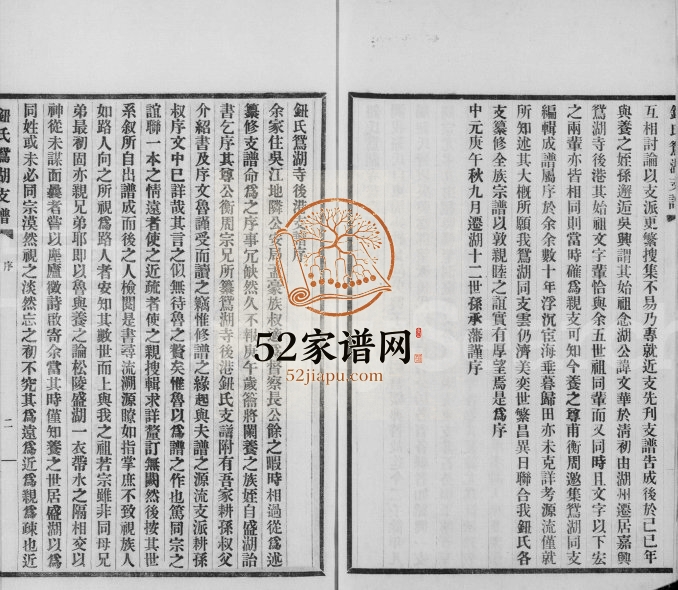 鈕氏鴛湖支譜
互相討論以支派更繁搜集不易乃專就近支先刋支譜告成後於己巳年
與養之姪孫邂逅吳興謂其始祖念湖公諱文華於清初由湖州遷居嘉興
鴛湖寺後港其始祖文字輩恰與余五世祖同輩而又同時且文字以下宏
之兩輩亦皆相同則當時確為親支可知今養之尊甫衡周邀集鴛湖同支
編輯成譜屬序於余余數十年浮沉宦海垂暮歸田亦未克詳考源流僅就
所知述其大槪所願我鴛湖同支雲仍濟美奕世繁昌異日聯合我鈕氏各
支纂修全族宗譜以敦親睦之誼實有厚望焉是為序
中元庚午秋九月遷湖十二世孫承藩謹序
鈕氏鴛湖寺後港支譜序
余家住吳江地隣公安局孟豪族叔 督察長公餘之暇時相過從為述
纂修支譜命為之序事冗缺然久不報庚午歲翁將闌養之族姪自盛湖詒
書乞序其尊公衡周宗兄所纂鴛湖寺後港鈕氏支譜附有吾家耕孫叔父
介紹書及序文魯謹受而讀之竊惟修譜之緣起與夫譜之源流支派耕孫
叔序文中已詳哉其言之似無待魯之贅矣惟魯以為譜之作也篤同宗之
誼聯一本之情遠者使之近疏者使之親搜輯求詳釐訂無闕然後按其世
系叙所自出譜成而後之人檢閱是書尋流溯源瞭如指掌庶不致視族人
如路人向之所視為路人者安知其數世而上與我之祖若宗雖非同母兄
弟最初固亦親兄弟耶即以魯與養之論松陵盛湖一衣帶水之隔相交以
神從未謀面曩者嘗以塵廬徵詩啟寄余當其時僅知養之世居盛湖以為
同姓或未必同宗漠然視之淡然忘之初不究其為遠為近為親為疎也近
鈕氏鴛湖支譜
序
二
52家谱网
52jiapu.com